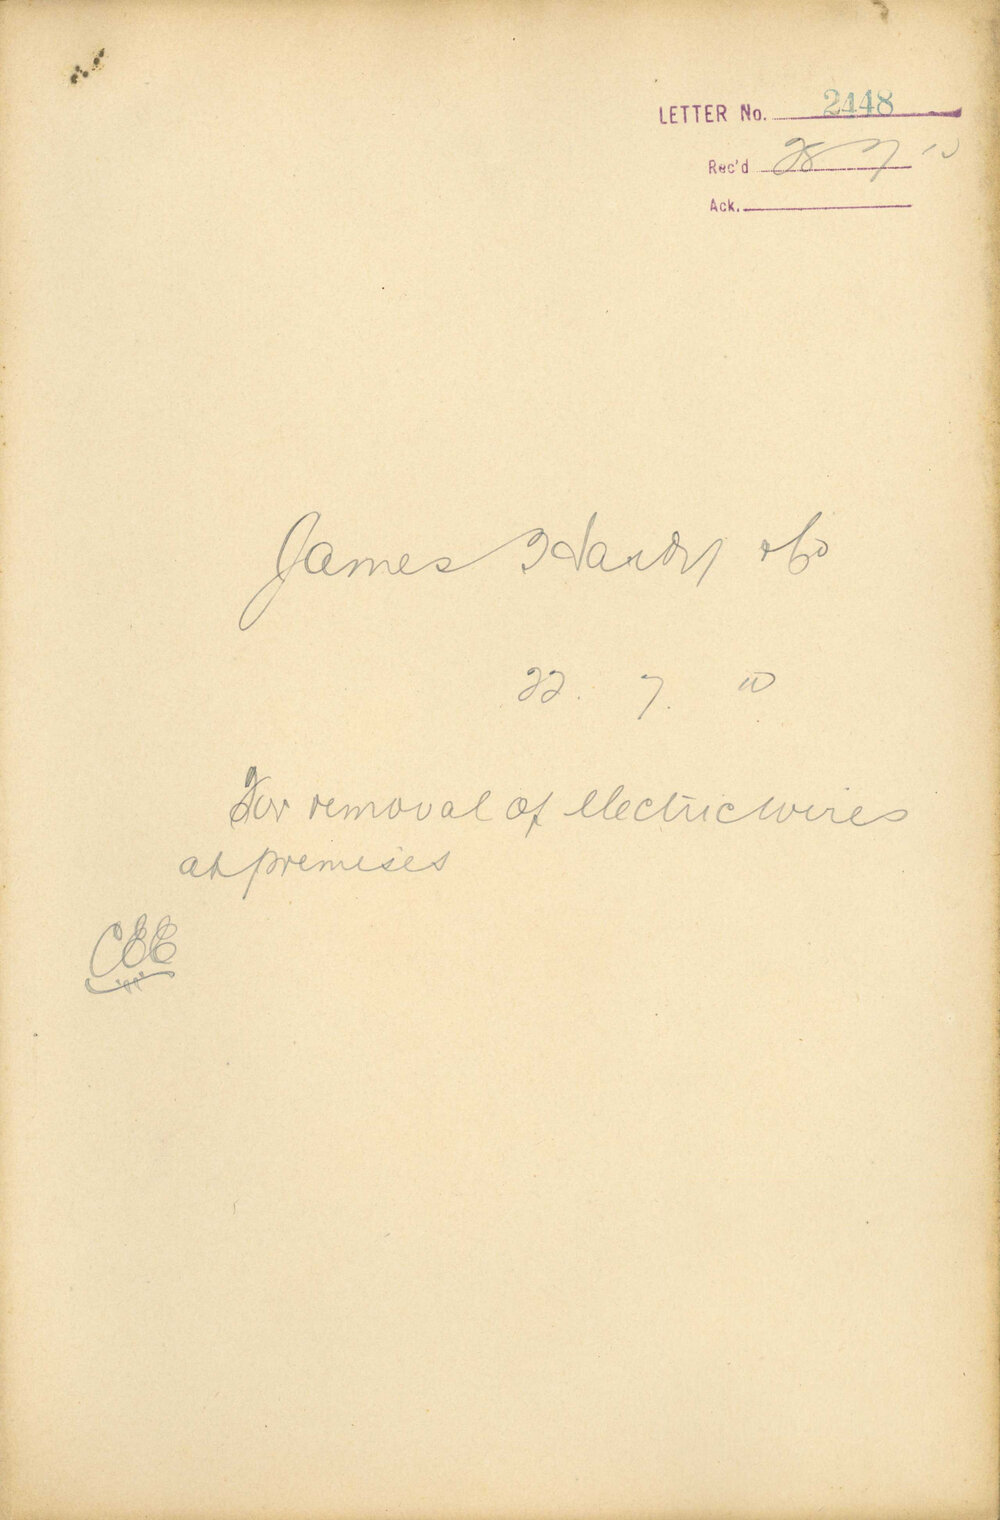 LETTER No. 2448
Rec'd 28 7 10
Ack.
James Hardy & Co
22. 7. 10
For removal of electric wires
at premises
CEE